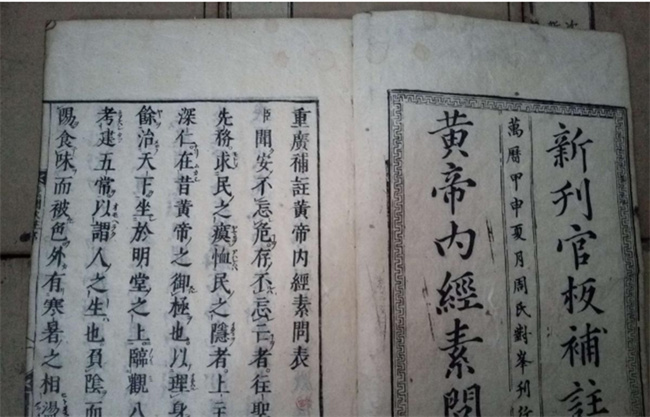 新刊官板補註
萬曆甲申夏月周氏對峯刊行
黃帝內經素問
重廣補註黃帝內經素問表
聞安不忘危存不忘亡者往聖
先務求民之瘼恤民之隱者上主
深仁在昔黃帝之御極也以理身
餘治天下坐於明堂之上臨觀八
考建五常以謂人之生也負陰而
陽食味而被色外有寒暑之相盪